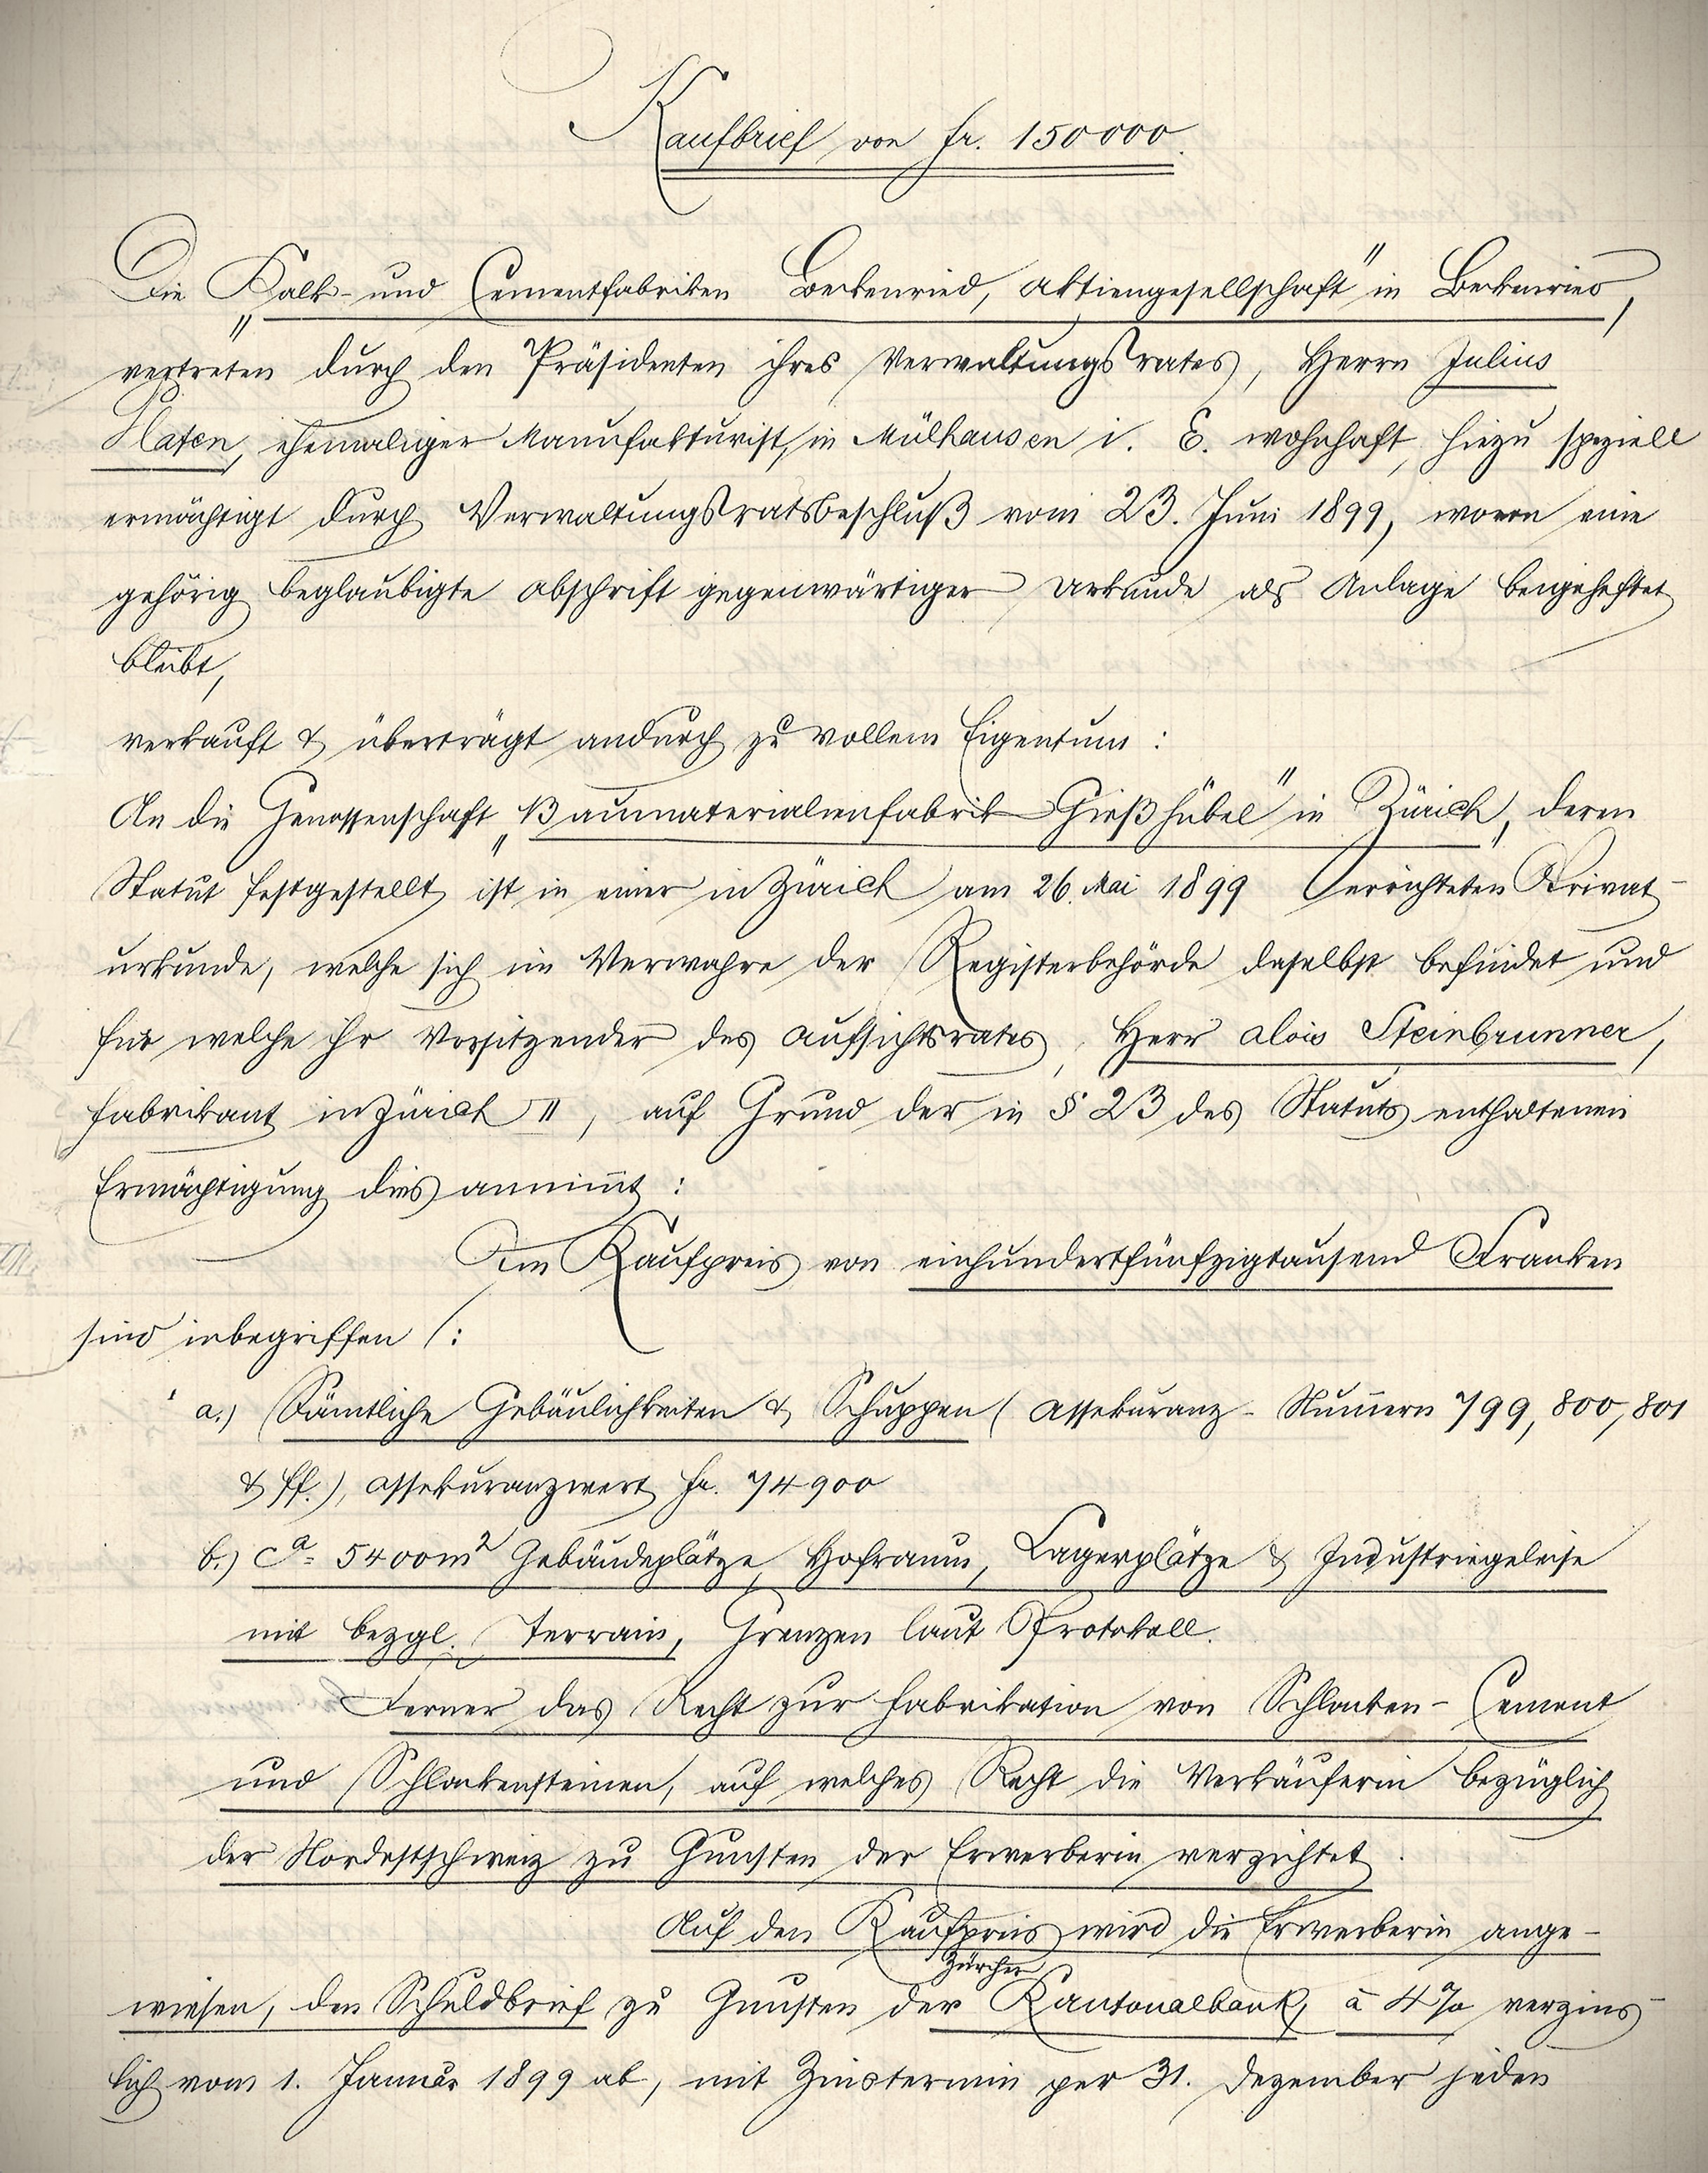 Kaufbrief von fr. 150000.
Die „Kalk- und Cementfabriken Beckenried, Aktiengesellschaft" in Beckenried,
vertreten durch den Präsidenten ihres Verwaltungsrates, Herrn Julius
ehemaliger Manufakturist, in Mülhausen i. E. wohnhaft, hiezu speziell
ermächtigt durch Verwaltungsratsbeschluß vom 23. Juni 1899, wovon eine
gehörig beglaubigte Abschrift gegenwärtiger Urkunde als Anlage beigeheftet
bleibt,
verkauft & überträgt andurch zu vollem Eigentum :
An die Genossenschaft „Baumaterialienfabrik Gießhübel" in Zürich, deren
Statut festgestellt ist in einer in Zürich am 26. Mai 1899 errichteten Privat-
urkunde, welche sich im Verwahre der Registerbehörde daselbst befindet und
für welche ihr Vorsitzender des Aufsichtsrates, Herr Alois Steinbrunner,
Fabrikant in Zürich II, auf Grund der in § 23 des Statuts enthaltenen
Ermächtigung dies annim̅t :
Im Kaufpreis von einhundertfünfzigtausend Franken
sind inbegriffen :
a.) Sämtliche Gebäulichkeiten & Schuppen (Assekuranz-Num̅ern 799, 800, 801
& ff.), Assekuranzwert fr. 74900
b.) ca. 5400 m² Gebäudeplätze, Hofraum, Lagerplätze & Industriegeleise
mit bezgl. Terrain, Grenzen laut Protokoll.
Ferner das Recht zur Fabrikation von Schlacken-Cement
und Schlackensteinen, auf welches Recht die Verkäuferin bezüglich
der Nordostschweiz zu Gunsten der Erwerberin verzichtet.
Auf den Kaufpreis wird die Erwerberin ange-
wiesen, den Schuldbrief zu Gunsten der Zürcher Kantonalbank, à 4% verzins-
lich vom 1. Januar 1899 ab, mit Zinstermin per 31. Dezember jeden